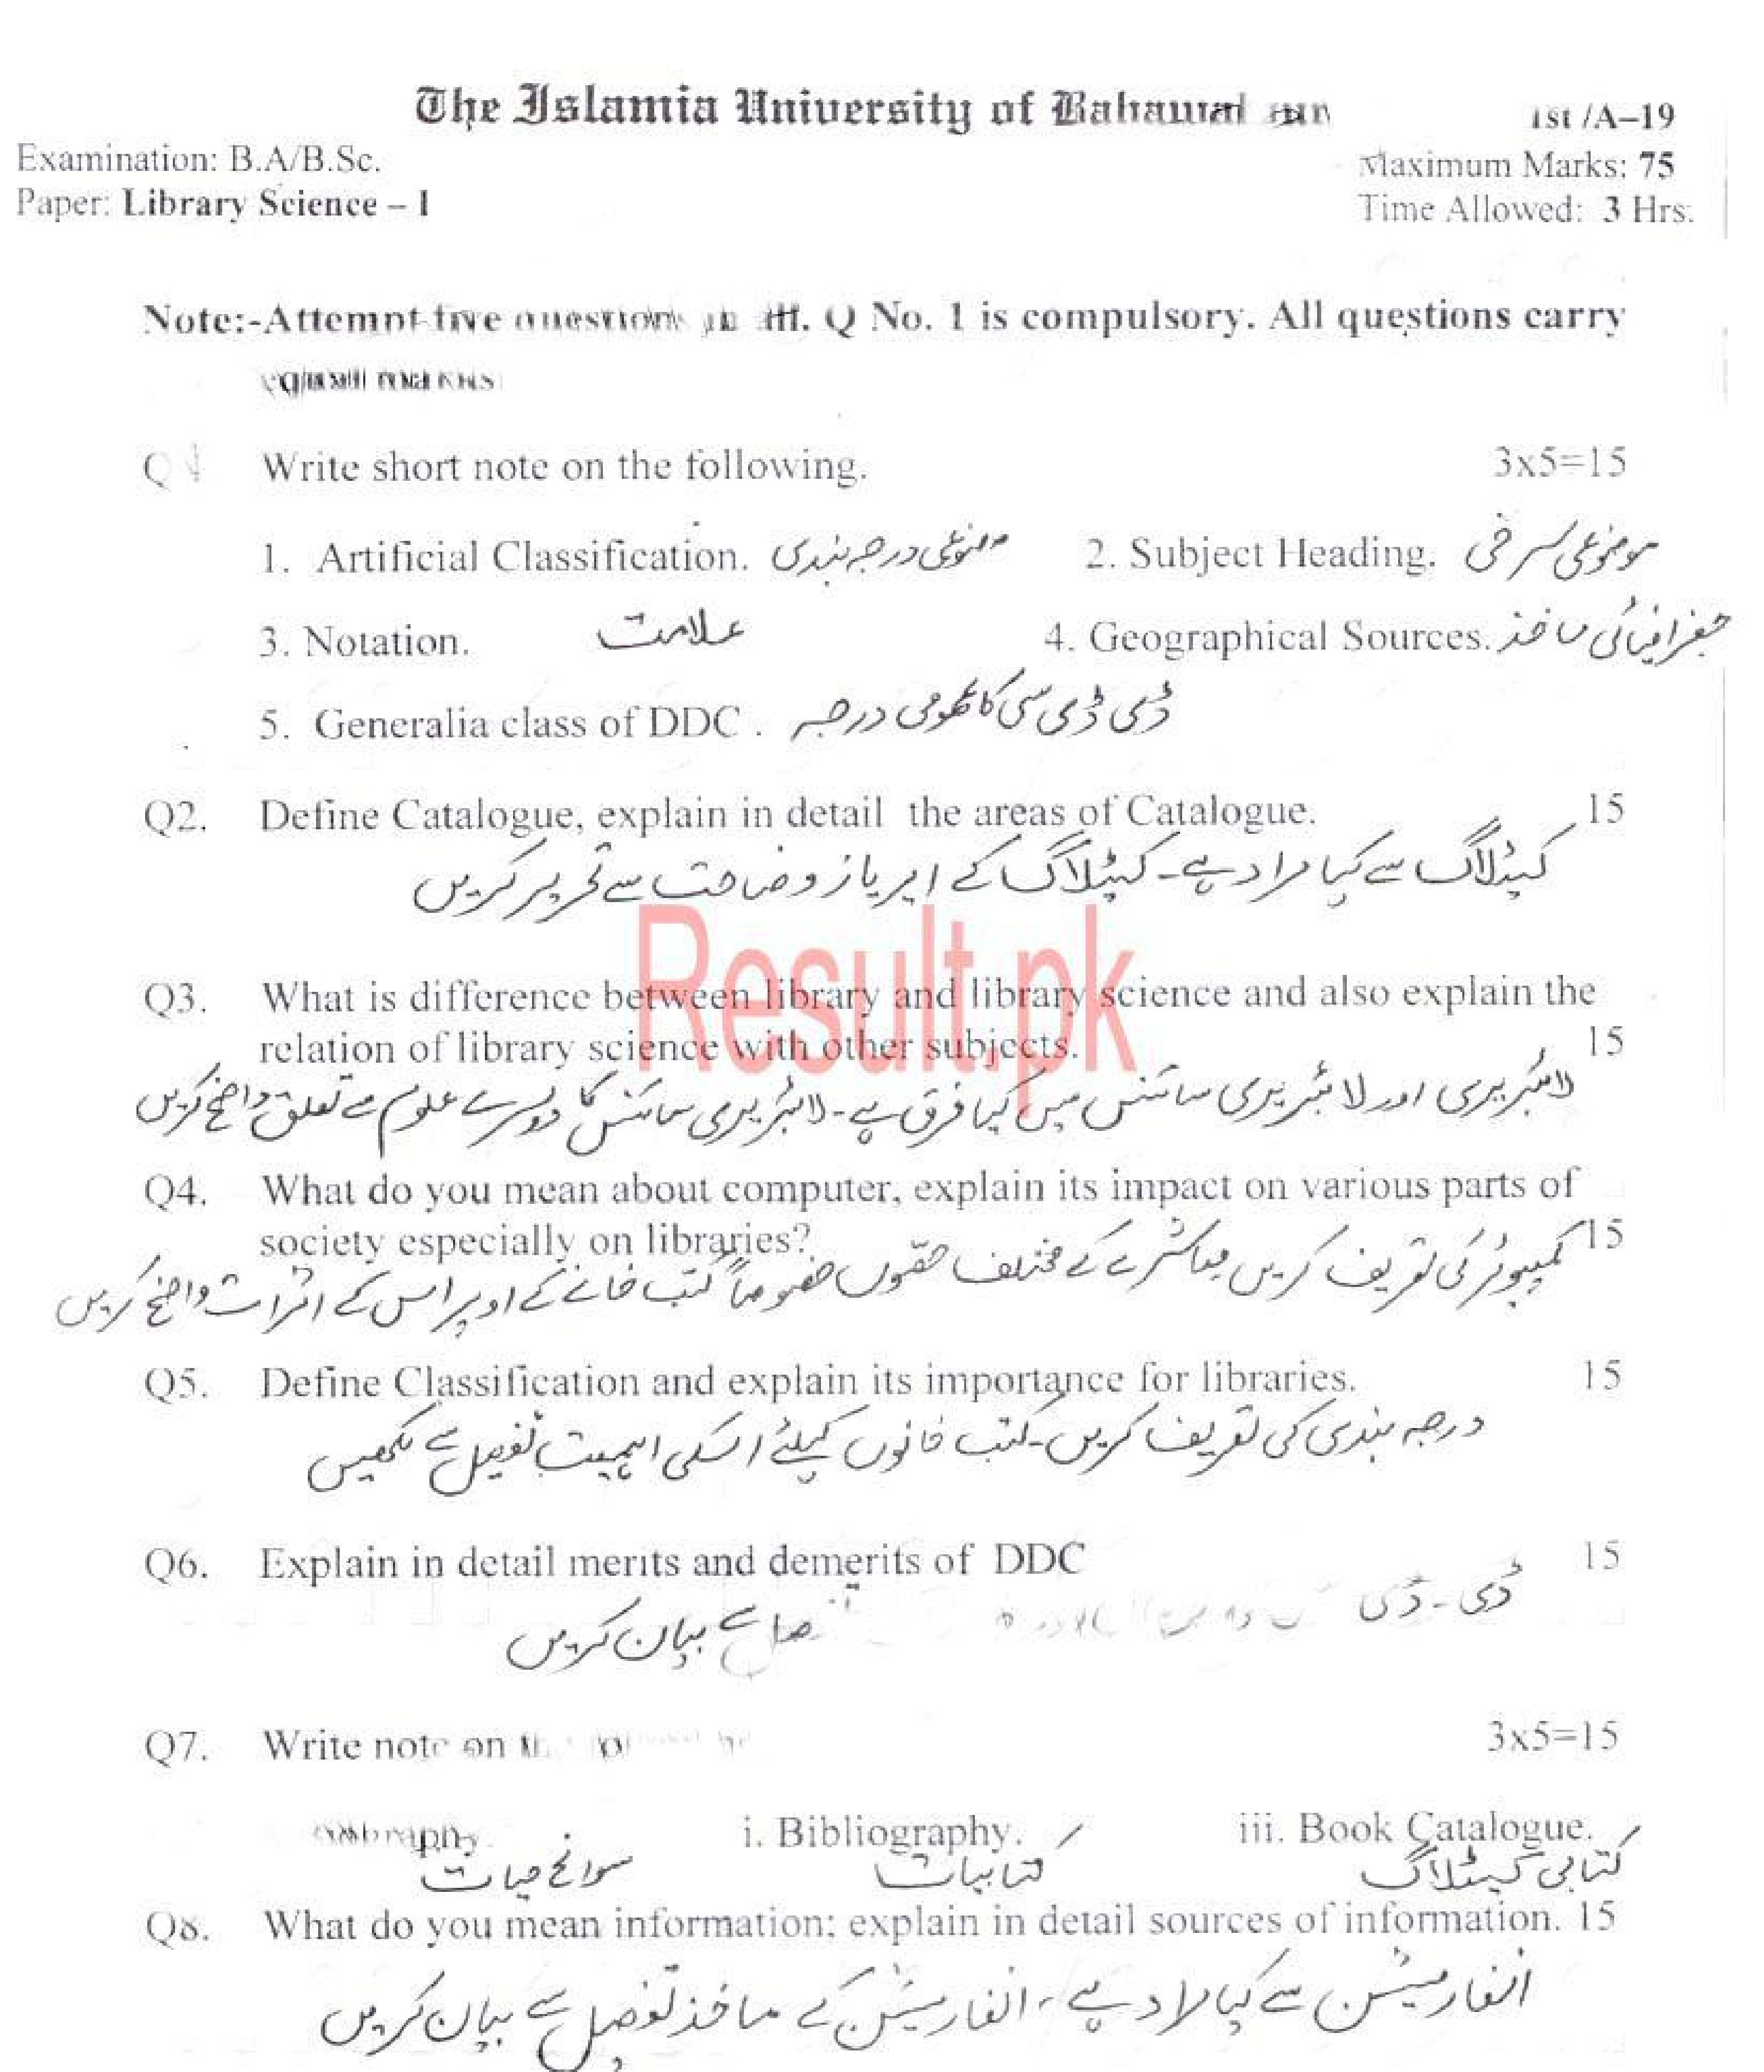 The Islamia University of
1st /A–19
Examination: B.A/B.Sc.
Maximum Marks: 75
Paper: Library Science – I
Time Allowed: 3 Hrs.
Note:-Attempt five questions in all. Q No. 1 is compulsory. All questions carry
equal marks
Q Write short note on the following. 3x5=15
1. Artificial Classification. مصنوعی درجہ بندی 2. Subject Heading. موضوعی سرخی
3. Notation. علامت 4. Geographical Sources. جغرافیائی ماخذ
5. Generalia class of DDC . ڈی ڈی سی کا عمومی درجہ
Q2. Define Catalogue, explain in detail the areas of Catalogue. 15
کیٹلاگ سے کیا مراد ہے۔ کیٹلاگ کے ایریاز وضاحت سے تحریر کریں
Result.pk
Q3. What is difference between library and library science and also explain the
relation of library science with other subjects. 15
لائبریری اور لائبریری سائنس میں کیا فرق ہے۔ لائبریری سائنس کا دوسرے علوم سے تعلق واضح کریں
Q4. What do you mean about computer, explain its impact on various parts of
society especially on libraries? 15
کمپیوٹر کی تعریف کریں معاشرے کے مختلف حصّوں خصوصاً کتب خانے کے اوپر اس کے اثرات واضح کریں
Q5. Define Classification and explain its importance for libraries. 15
درجہ بندی کی تعریف کریں۔ کتب خانوں کیلئے اسکی اہمیت تفصیل سے لکھیں
Q6. Explain in detail merits and demerits of DDC 15
ڈی۔ڈی
سے بیان کریں
Q7. Write note on 3x5=15
i. Bibliography. iii. Book Catalogue.
سوانح حیات کتابیات کتابی کیٹلاگ
Q8. What do you mean information; explain in detail sources of information. 15
انفارمیشن سے کیا مراد ہے، انفارمیشن کے ماخذ تفصیل سے بیان کریں